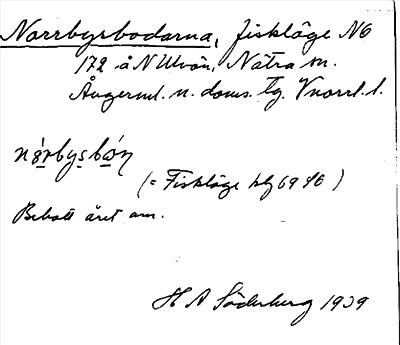 Norrbysbodarna, fiskläge NO
172 å N Ulvön, Nätra sn.
Ångerml. n. doms. tg. Vnorrl. l.
nórbysbón
(= Fiskläge blg 69 SO)
Bebott året om.
H A Söderberg 1939